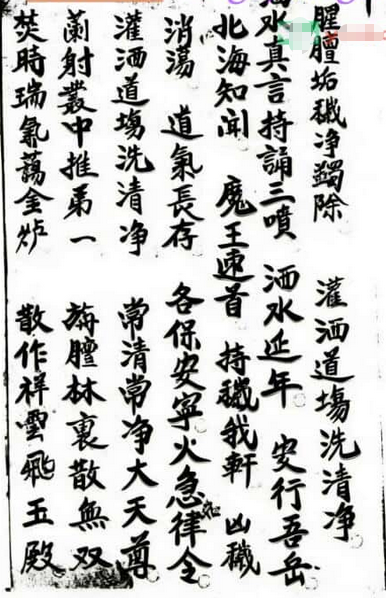 腥膻垢穢净蠲除 灌洒道塲洗清净
洒水真言持誦三噴 洒水延年 安行吾岳
北海知聞 魔王速首 持穢我軒 凶穢
消蕩 道氣長存 各保安寧火急律令
灌洒道塲洗清净 常清常净大天尊
蘭射叢中推第一 旃膻林裏散無双
焚時瑞氣藹金炉 散作祥雲飛玉殿